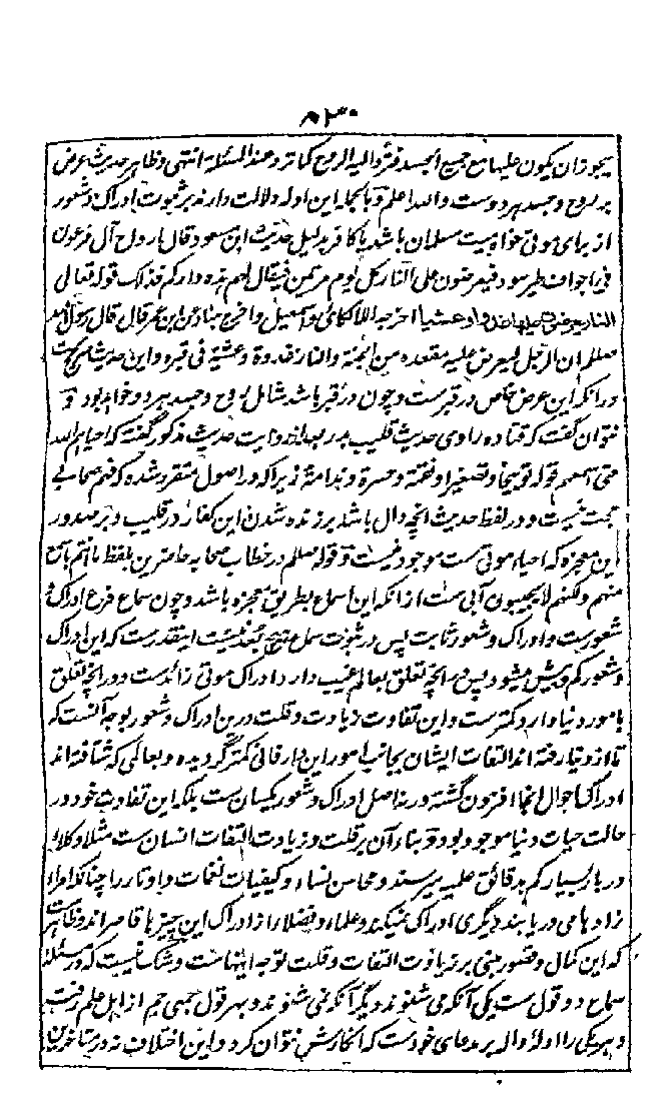 ۵۳۰
یجوز ان یکون علیها مع جمیع الجسد فترد الیه الروح کما ترد عند المسئلة انتهی و ظاهر حدیث عرض
بر روح و جسد هر دوست والله اعلم و بالجمله این ادله دلالت دارند بر ثبوت ادراک و شعور
از برای موتی خواه میت مسلمان باشد یا کافر بدلیل حدیث ابن مسعود قال ارواح آل فرعون
فی اجواف طیر سود فیعرضون علی النار کل یوم مرتین فیقال لهم هذه دارکم فذلک قوله تعالی
النار یعرضون علیها غدوا و عشیا اخرجه اللالکائی و الاسمعیلی و اخرج عن ابن عمر قال قال رسول الله
صلعم ان الرجل لیعرض علیه مقعده من الجنة والنار غدوة وعشیة فی قبره و این حدیث صریح ست
در آنکه این عرض خاص در قبرست و چون در قبر باشد شامل روح و جسد هر دو خواهد بود و
نتوان گفت که قتاده راوی حدیث قلیب بدر بعد از روایت حدیث مذکور گفته که احیاهم الله
حتی اسمعهم قوله توبیخا وتصغیرا ونقمة وحسرة وندامة زیرا که در اصول متقرر شده که فهم صحابی
حجت نیست و در لفظ حدیث آنچه دال باشد بر زنده شدن این کفار در قلیب و بر صدور
این معجزه که احیاء موتی ست موجود نیست و قوله صلعم در خطاب صحابه حاضرین بلفظ ما انتم باسمع
منهم ولکنهم لا یجیبون آبی ست از آنکه این اسماع بطریق معجزه باشد و چون سماع فرع ادراک و
شعورست و ادراک و شعور ثابت پس در ثبوت سماع هیچ بُعد نیست اینقدر ست که این ادراک
و شعور کم و بیش میشود پس هر آنچه تعلق بعالم غیب دارد ادراک موتی زائدست و در آنچه تعلق
بامور دنیا دارد کمترست و این تفاوت زیادت و قلت درین ادراک و شعور بوجه آنست که
تا از دنیا رفته اند التفات ایشان بجانب امور این دار فانی کمتر گردیده و بعالمی که شتافته اند
ادراک احوال آنجا افزون گشته ورنه اصل ادراک و شعور یکسان ست بلکه این تفاوت خود در
حالت حیات دنیا موجود بود و بناء آن بر قلت و زیادت التفات انسان ست مثلا وکلاء
دربار بسیار کم بدقائق علمیه میرسند و محاسن نساء و کیفیات نغمات و اوتار را چنانکه امراء
زادها می دریابند دیگری ادراک نمیکند و علماء و فضلاء از ادراک این چیزها قاصر اند و ظاهرست
که این کمال و قصور مبنی بر زیادت التفات و قلت توجه اینهاست و شک نیست که در مسئله
سماع دو قول ست یکی آنکه می شنوند و دیگر آنکه نمی شنوند و بهر قول جمعی جم از اهل علم رفته
و هر یکی را ادله دال بر مدعای خودست که انکارش نتوان کرد و این اختلاف نه در متاخرین